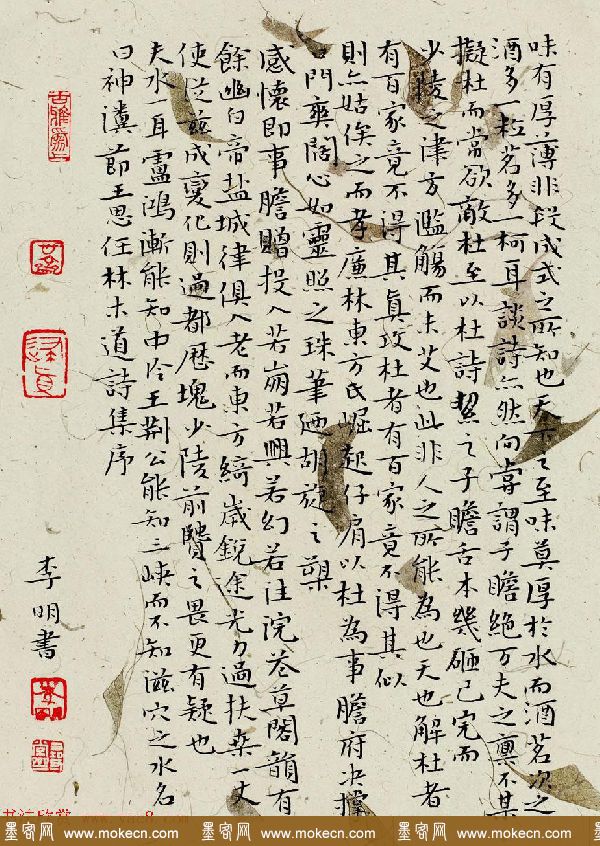 味有厚薄非段成式之所知也天下之至味莫厚於水而酒茗次之
酒多一粒茗多一柯耳談詩亦然向嘗謂子瞻絕万夫之稟不某
擬杜而常欲敵杜至以杜詩
之子瞻舌本幾砸已完而
少陵之津方濫觴而未艾也此非人之所能為也天也解杜者
有百家竟不得其真攻杜者有百家竟不得其似
則亦姑俟之而孝廉林東方氏崛起仔肩以杜為事瞻府决
門爽闊心如靈照之珠筆廼胡旋之槊
感懷即事贍贈投入若崩若興若幻若注院花草閣韻有
餘幽白帝盐城律俱入老而東方綺歲銳金光力過扶桑一丈
使從茲成變化則過都歷塊少陵前贒之畏更有疑也
夫水一耳盧鴻漸能知中泠王荆公能知三峽而不知滋穴之水名
曰神瀵節王思任林木道詩集序
李明書
墨客网 www.mokecn.com 墨客网 www.mokecn.com 墨客网 www.mokecn.com